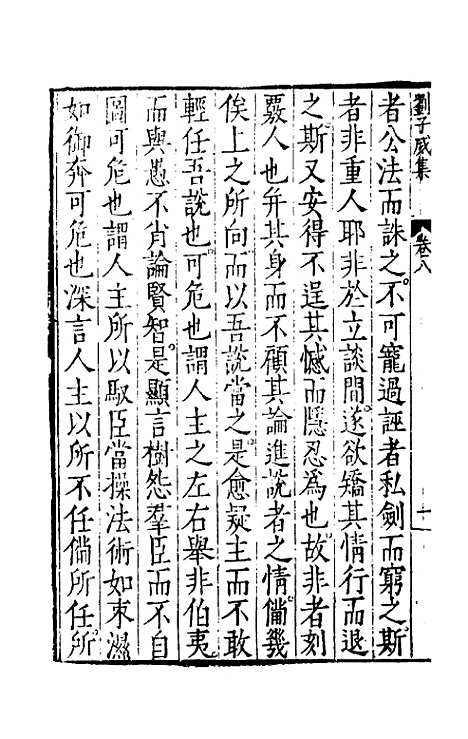 劉子威集 卷八 十一
者公法而誅之不可寵過誣者私劍而窮之斯
者非重人耶非於立談間遂欲矯其情行而退
之斯又安得不逞其憾而隱忍為也故非者刻
覈人也弁其身而不顧其論進說者之情僃幾
俟上之所向而以吾說當之是愈疑主而不敢
輕任吾說也可危也謂人主之左右舉非伯夷
而與愚不肖論賢智是顯言樹怨羣臣而不自
圖可危也謂人主所以馭臣當操法術如束濕
如御奔可危也深言人主以所不任偹所任所